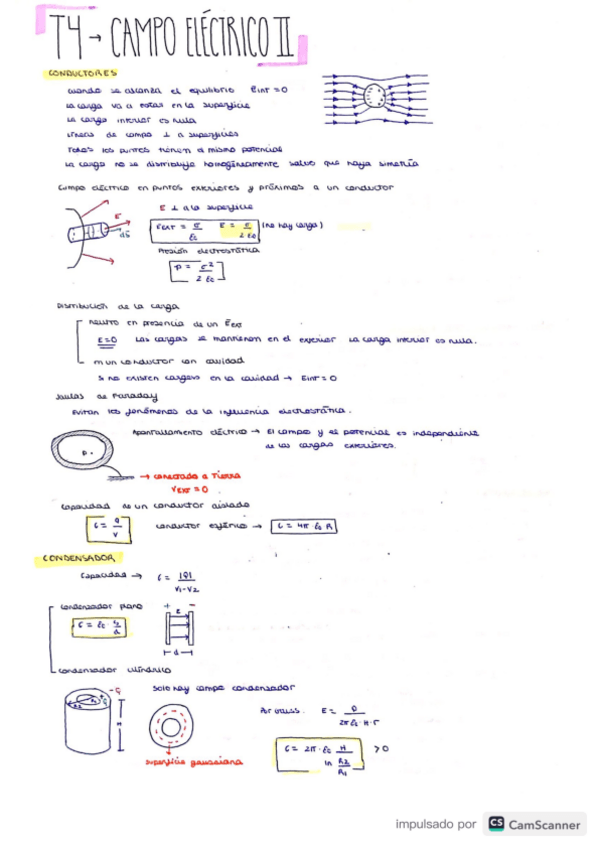 T4 → CAMPO ELÉCTRICO II
CONDUCTORES
cuando se alcanza el equilibrio EINT = 0
la carga va a estar en la superficie
la carga interior es nula
líneas de campo ⊥ a superficies
Todos los puntos tienen el mismo potencial
la carga no se distribuye homogéneamente salvo que haya simetría
Campo eléctrico en puntos exteriores y próximos a un conductor
E ⊥ a la superficie
E
dS
EEXT = σ/ε0 E = σ/2ε0 (no hay carga)
Presión electrostática
P = σ²/2ε0
Distribución de la carga
neutro en presencia de un Eext
E=0 Las cargas se mantienen en el exterior. La carga interior es nula.
en un conductor con cavidad
Si no existen cargas en la cavidad → Eint = 0
Jaulas de Faraday
Evitan los fenómenos de la influencia electrostática.
Apantallamiento eléctrico → El campo y el potencial es independiente
de las cargas exteriores.
P.
→ conectado a Tierra
VEXT = 0
Capacidad de un conductor aislado
C = q/V conductor esférico → C = 4π ε0 R
CONDENSADOR
Capacidad → C = |Q|/V1-V2
condensador plano
+ -
E
C = ε0 · S/d
d
condensador cilíndrico
-Q
H
Solo hay campo condensador
Por Gauss. E = Q/2π ε0 · H · r
C = 2π · ε0 H/ln R2/R1 > 0
superficie gaussiana
impulsado por CS CamScanner